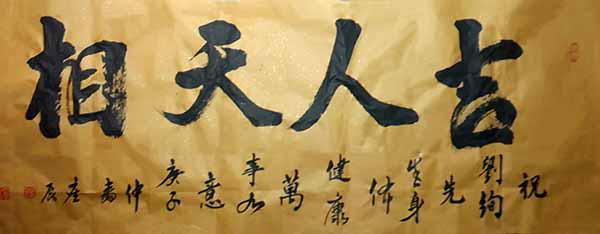 吉人天相
祝劉絢先生身体健康萬事如意庚子仲